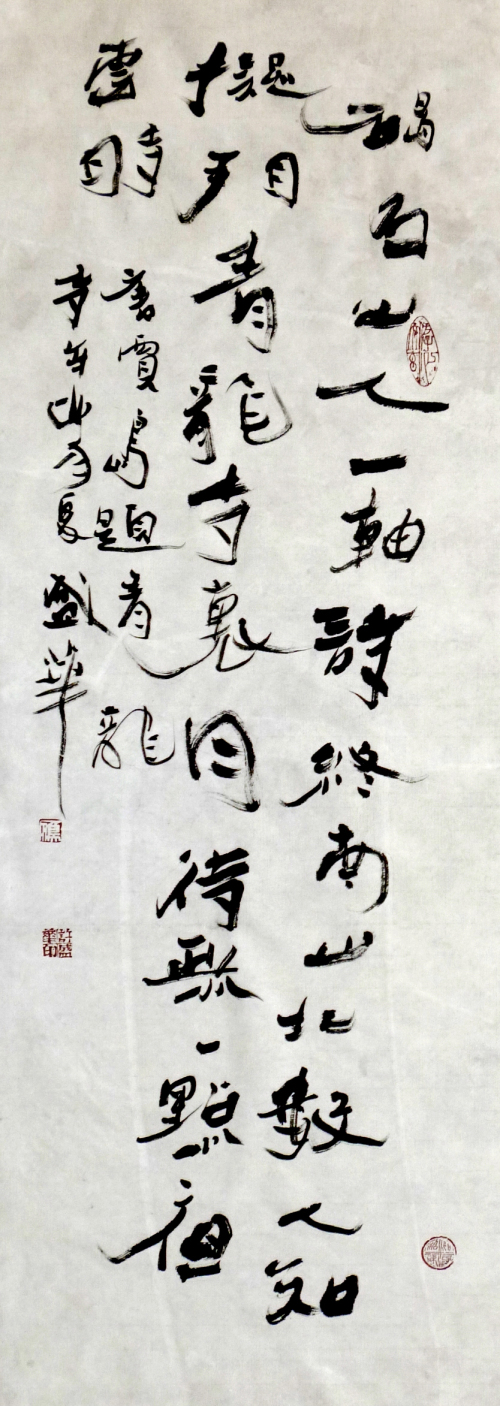 碣石山人一軸詩終南山北數人知
擬青龍寺裏月待一點夜
雲時
書賈島題青龍
寺年夏盛華